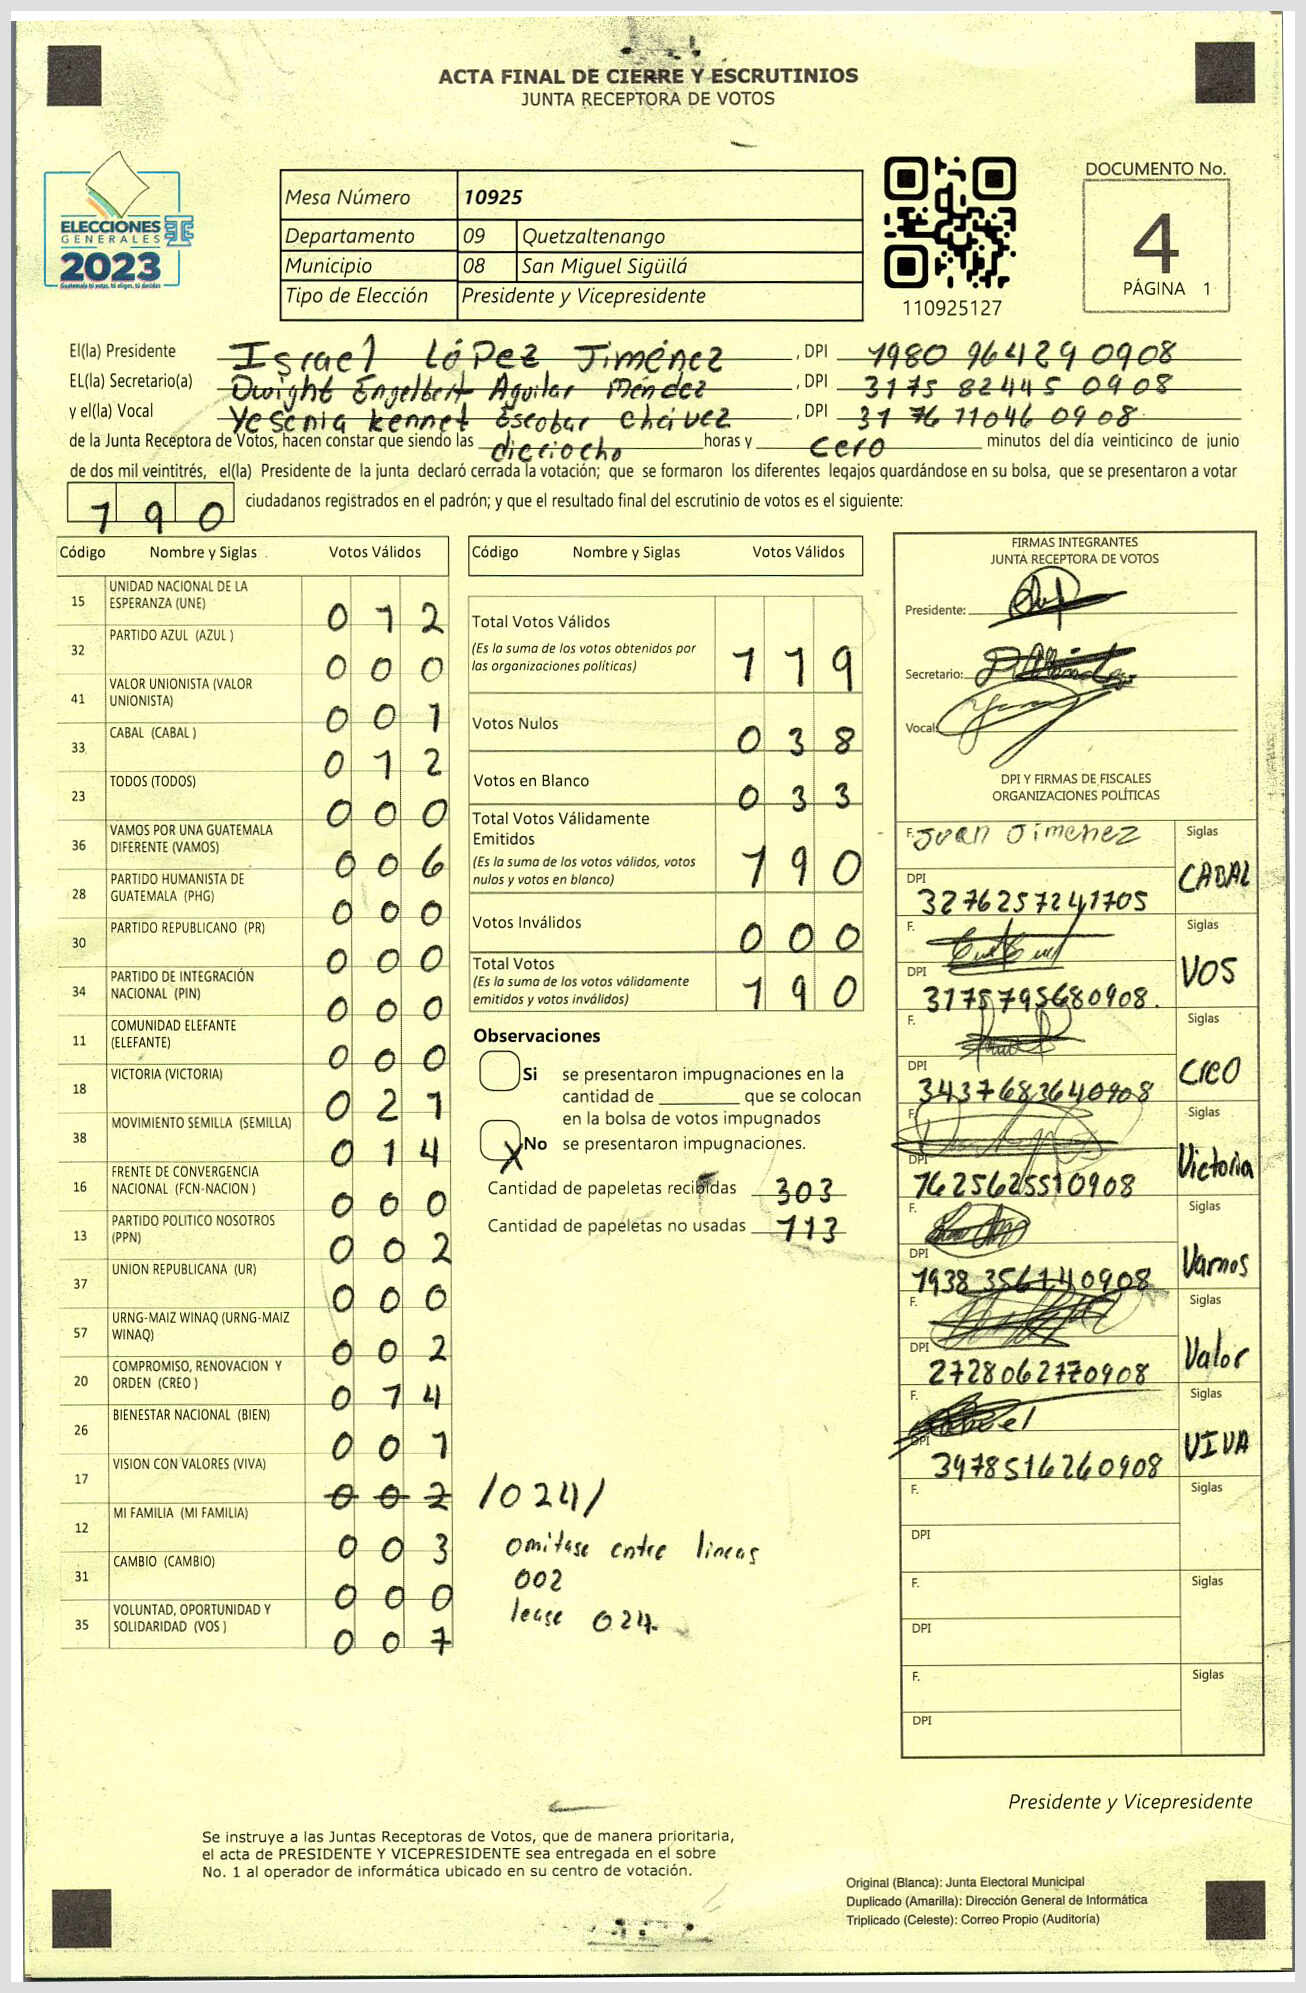 ACTA FINAL DE CIERRE Y ESCRUTINIOS
JUNTA RECEPTORA DE VOTOS
ELECCIONES
GENERALES
2023
Guatemala tú votas, tú eliges, tú decides
Mesa Número 10925
Departamento 09 Quetzaltenango
Municipio 08 San Miguel Sigüilá
Tipo de Elección Presidente y Vicepresidente
110925127
DOCUMENTO No.
4
PÁGINA 1
El(la) Presidente Israel López Jiménez , DPI 1980 96429 0908
EL(la) Secretario(a) Dwight Engelbert Aguilar Méndez , DPI 3175 82445 0908
y el(la) Vocal Yesenia kennet Escobar Chávez , DPI 3176 11046 0908
de la Junta Receptora de Votos, hacen constar que siendo las dieciocho horas y cero minutos del día veinticinco de junio
de dos mil veintitrés, el(la) Presidente de la junta declaró cerrada la votación; que se formaron los diferentes legajos quardándose en su bolsa, que se presentaron a votar
190 ciudadanos registrados en el padrón; y que el resultado final del escrutinio de votos es el siguiente:
Código Nombre y Siglas Votos Válidos
15 UNIDAD NACIONAL DE LA ESPERANZA (UNE) 012
32 PARTIDO AZUL (AZUL ) 000
41 VALOR UNIONISTA (VALOR UNIONISTA) 001
33 CABAL (CABAL ) 012
23 TODOS (TODOS) 000
36 VAMOS POR UNA GUATEMALA DIFERENTE (VAMOS) 006
28 PARTIDO HUMANISTA DE GUATEMALA (PHG) 000
30 PARTIDO REPUBLICANO (PR) 000
34 PARTIDO DE INTEGRACIÓN NACIONAL (PIN) 000
11 COMUNIDAD ELEFANTE (ELEFANTE) 000
18 VICTORIA (VICTORIA) 021
38 MOVIMIENTO SEMILLA (SEMILLA) 014
16 FRENTE DE CONVERGENCIA NACIONAL (FCN-NACION ) 000
13 PARTIDO POLITICO NOSOTROS (PPN) 002
37 UNION REPUBLICANA (UR) 000
57 URNG-MAIZ WINAQ (URNG-MAIZ WINAQ) 002
20 COMPROMISO, RENOVACION Y ORDEN (CREO ) 014
26 BIENESTAR NACIONAL (BIEN) 001
17 VISION CON VALORES (VIVA) 002 /024/
12 MI FAMILIA (MI FAMILIA) 003
31 CAMBIO (CAMBIO) 000
35 VOLUNTAD, OPORTUNIDAD Y SOLIDARIDAD (VOS ) 007
omitase entre lineas
002
lease 024.
Código Nombre y Siglas Votos Válidos
Total Votos Válidos 119
(Es la suma de los votos obtenidos por
las organizaciones políticas)
Votos Nulos 038
Votos en Blanco 033
Total Votos Válidamente
Emitidos 190
(Es la suma de los votos válidos, votos
nulos y votos en blanco)
Votos Inválidos 000
Total Votos 190
(Es la suma de los votos válidamente
emitidos y votos inválidos)
Observaciones
Si se presentaron impugnaciones en la
cantidad de ________ que se colocan
en la bolsa de votos impugnados
X No se presentaron impugnaciones.
Cantidad de papeletas recibidas 303
Cantidad de papeletas no usadas 113
FIRMAS INTEGRANTES
JUNTA RECEPTORA DE VOTOS
Presidente:
Secretario:
Vocal:
DPI Y FIRMAS DE FISCALES
ORGANIZACIONES POLÍTICAS
F. Juan Jimenez Siglas CABAL
DPI 3276257241705
F. Siglas VOS
DPI 3175795680908.
F. Siglas CREO
DPI 3437683640908
F. Siglas Victoria
DPI 1625625510908
F. Siglas Vamos
DPI 1938 356140908
F. Siglas Valor
DPI 2728062770908
F. Siglas VIVA
DPI 3978516260908
F. Siglas
DPI
F. Siglas
DPI
F. Siglas
DPI
Presidente y Vicepresidente
Se instruye a las Juntas Receptoras de Votos, que de manera prioritaria,
el acta de PRESIDENTE Y VICEPRESIDENTE sea entregada en el sobre
No. 1 al operador de informática ubicado en su centro de votación.
Original (Blanca): Junta Electoral Municipal
Duplicado (Amarilla): Dirección General de Informática
Triplicado (Celeste): Correo Propio (Auditoría)